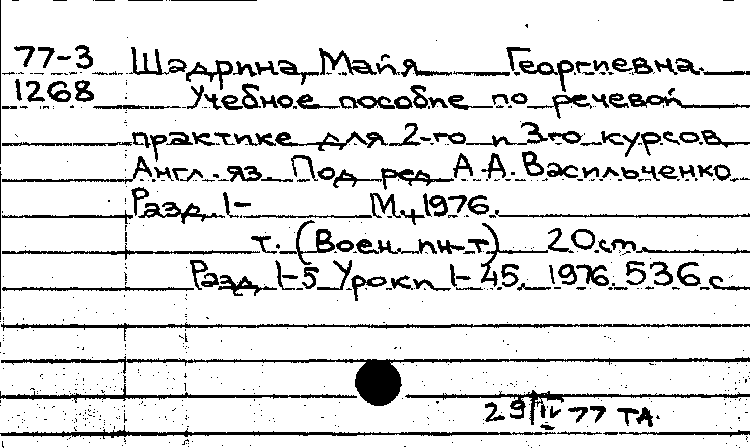 77-3 Шадрина, Майя Георгиевна.
1268 Учебное пособие по речевой
практике для 2-го и 3-го курсов
Англ. яз. Под ред А.А. Васильченко
Разд. 1- М., 1976.
т. (Воен. ин-т) 20 см.
Разд 1-5 Уроки 1-45. 1976. 536 с
29/IV 77 ТА.